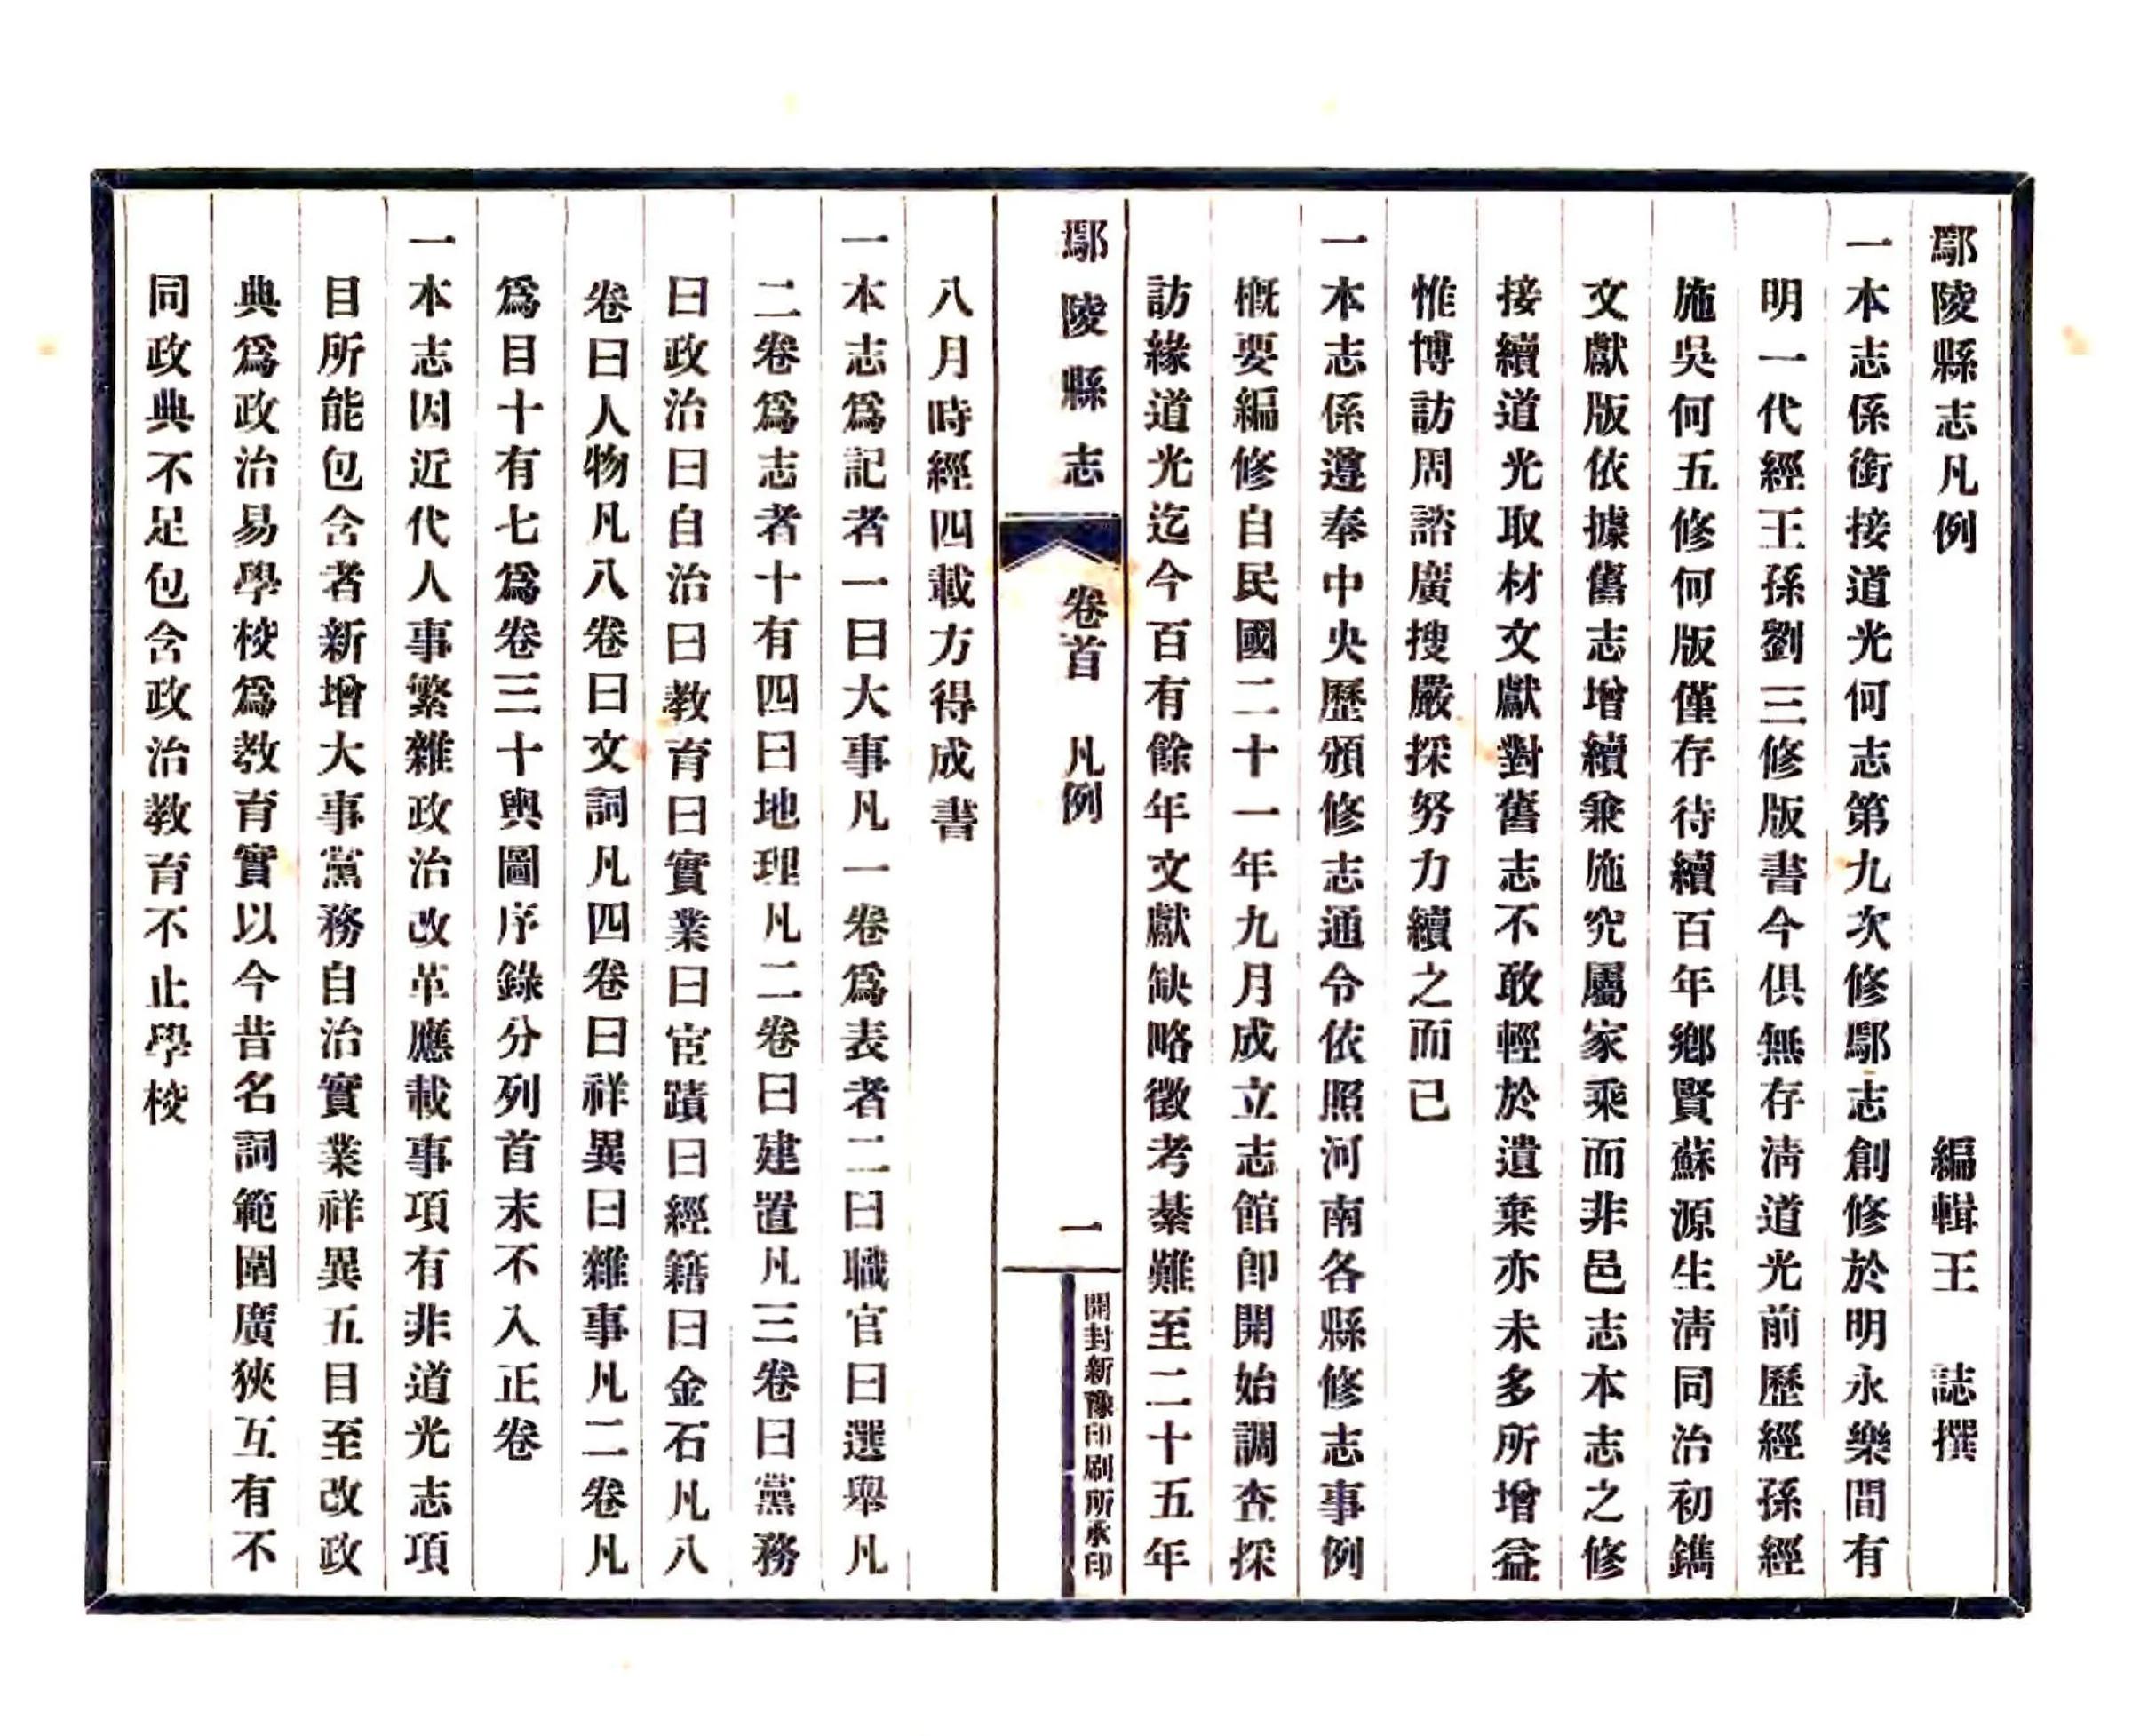 鄢陵縣志凡例　編輯王　誌撰
一本志係銜接道光何志第九次修鄢志創修於明永樂間有
明一代經王孫劉三修版書今俱無存淸道光前歷經孫經
施吳何五修何版僅存待續百年鄉賢蘇源生淸同治初鐫
文獻版依據舊志增續兼施究屬家乘而非邑志本志之修
接續道光取材文獻對舊志不敢輕於遺棄亦未多所增益
惟博訪周諮廣搜嚴採努力續之而已
一本志係遵奉中央歷頒修志通令依照河南各縣修志事例
概要編修自民國二十一年九月成立志館卽開始調查採
訪緣道光迄今百有餘年文獻缺略徵考綦難至二十五年
鄢陵縣志　卷首　凡例　一　開封新豫印刷所承印
八月時經四載方得成書
一本志爲記者一曰大事凡一卷爲表者二曰職官曰選舉凡
二卷爲志者十有四曰地理凡二卷曰建置凡三卷曰黨務
曰政治曰自治曰教育曰實業曰宦蹟曰經籍曰金石凡八
卷曰人物凡八卷曰文詞凡四卷曰祥異曰雜事凡二卷凡
爲目十有七爲卷三十輿圖序錄分列首末不入正卷
一本志因近代人事繁雜政治改革應載事項有非道光志項
目所能包含者新增大事黨務自治實業祥異五目至改政
典爲政治易學校爲教育實以今昔名詞範圍廣狹互有不
同政典不足包含政治教育不止學校